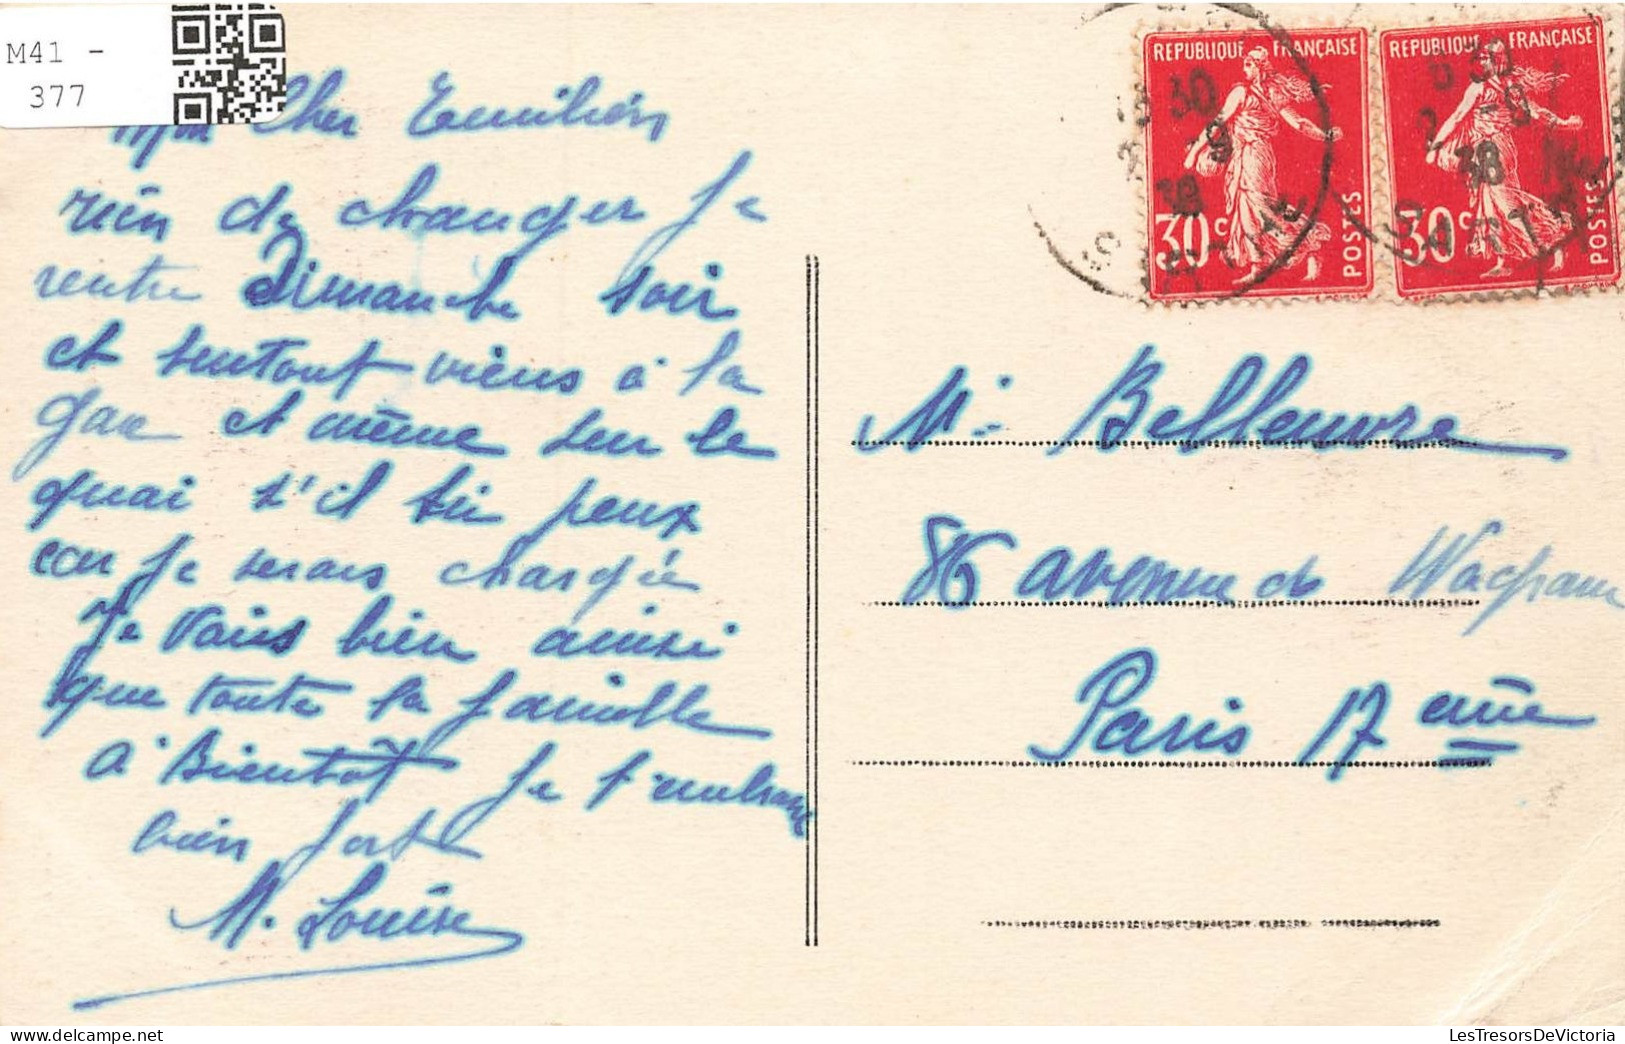 M41 -
377
Mon Cher Emilien
rien de changer je
rentre Dimanche soir
et surtout viens à la
gare et même sur le
quai s'il tu peux
car je serais chargée
Je vais bien ainsi
que toute la famille
à Bientôt je t'embrasse
bien fort
M. Louise
REPUBLIQUE FRANÇAISE
30c
POSTES
REPUBLIQUE FRANÇAISE
30c
POSTES
30
-9
38
SARTHE
30
-9
38
SARTHE
Mr Belleuvre
86 avenue de Wagram
Paris 17 ème
LesTresorsDeVictoria